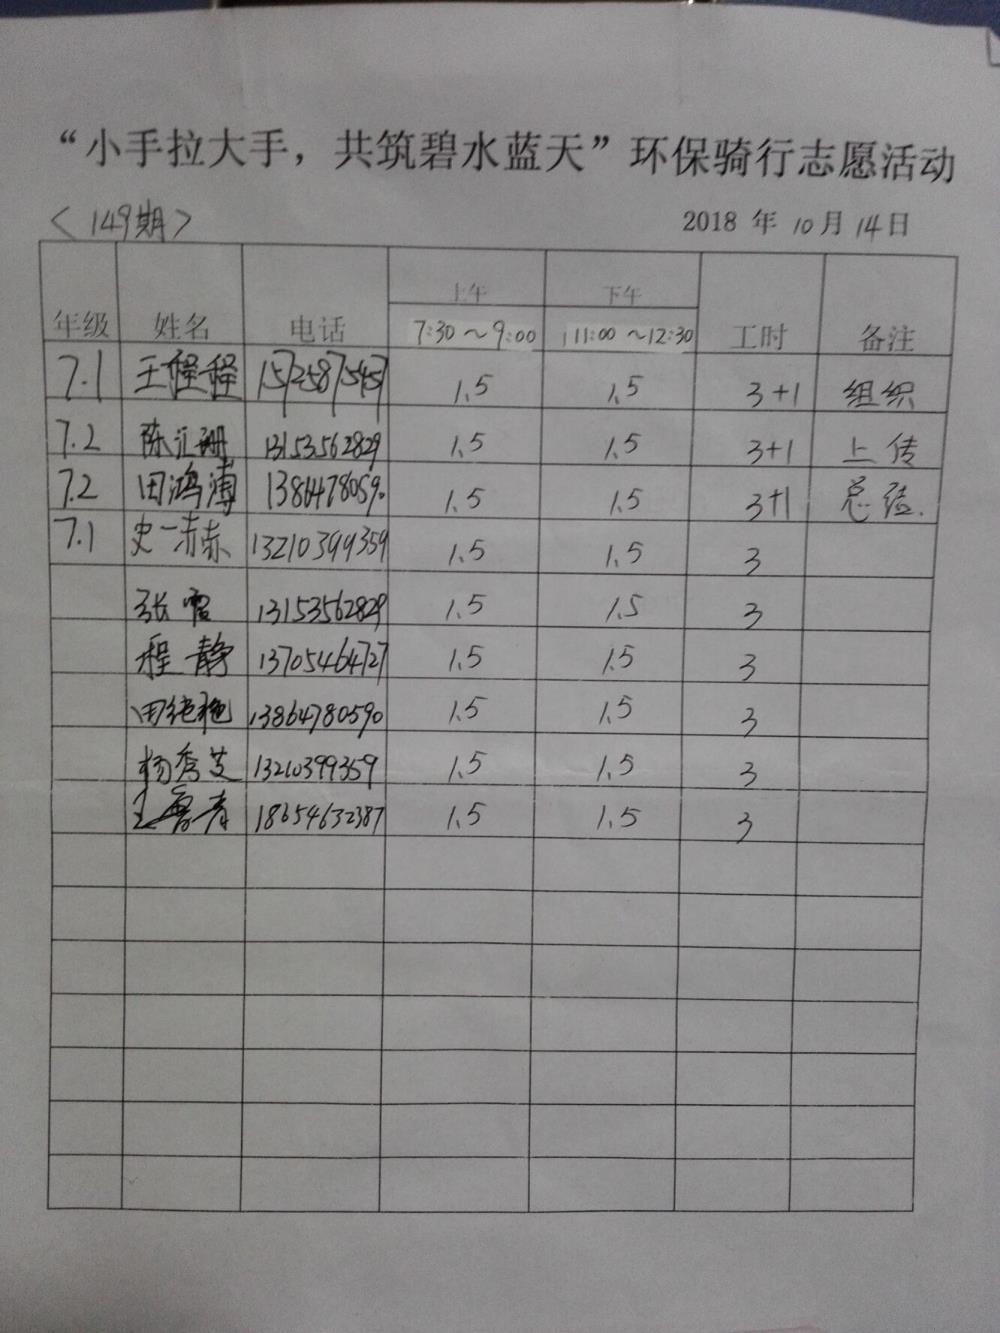 “小手拉大手，共筑碧水蓝天”环保骑行志愿活动
<149期> 2018 年 10 月 14 日
年级 姓名 电话 上午 7:30～9:00 下午 11:00～12:30 工时 备注
7.1 王程程 15725871545 1.5 1.5 3+1 组织
7.2 陈汇珊 13153562829 1.5 1.5 3+1 上传
7.2 田鸿溥 13864780590 1.5 1.5 3+1 总结.
7.1 史一赤 13210399359 1.5 1.5 3
张雷 13153562829 1.5 1.5 3
程静 13705464727 1.5 1.5 3
田艳 13864780590 1.5 1.5 3
杨秀芝 13210399359 1.5 1.5 3
王青 18654632387 1.5 1.5 3